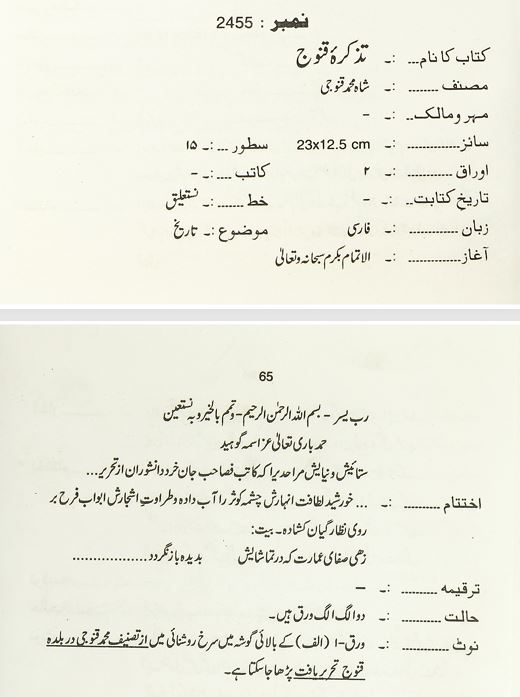 نمبر : 2455
کتاب کا نام... :۔ تذکرۂ قنوج
مصنف ........ :۔ شاہ محمد قنوجی
مہر و مالک.. :۔ –
سائز............. :۔ 23x12.5 cm سطور ... :۔ ۱۵
اوراق ........... :۔ ۲ کاتب .... :۔ –
تاریخ کتابت.. :۔ – خط ....... :۔ نستعلیق
زبان ............ :۔ فارسی موضوع :۔ تاریخ
آغاز............. :۔ الاتمام بکرم سبحانہ وتعالیٰ
65
رب یسر – بسم اللہ الرحمٰن الرحیم – وتمم بالخیر وبہ نستعین
حمد باری تعالیٰ عز اسمہ گوہید
ستائیش و نیایش مراحدیرا کہ کاتب فصاحب جان خرد دانشوران از تحریر...
اختتام .......... :۔ ... خورشید لطافت انہارش چشمہ کوثر را آب دادہ و طراوتِ اشجارش ابواب فرح بر
روی نظارگیان کشادہ۔ بیت:
زھی صفای عمارت کہ در تماشایش بدیدہ باز نگردد..................
ترقیمہ .......... :۔ –
حالت ........... :۔ دو الگ الگ ورق ہیں۔
نوٹ ............. :۔ ورق-۱ (الف) کے بالائی گوشہ میں سرخ روشنائی میں از تصنیف محمد قنوجی در بلدہ
قنوج تحریر یافت پڑھا جاسکتا ہے۔